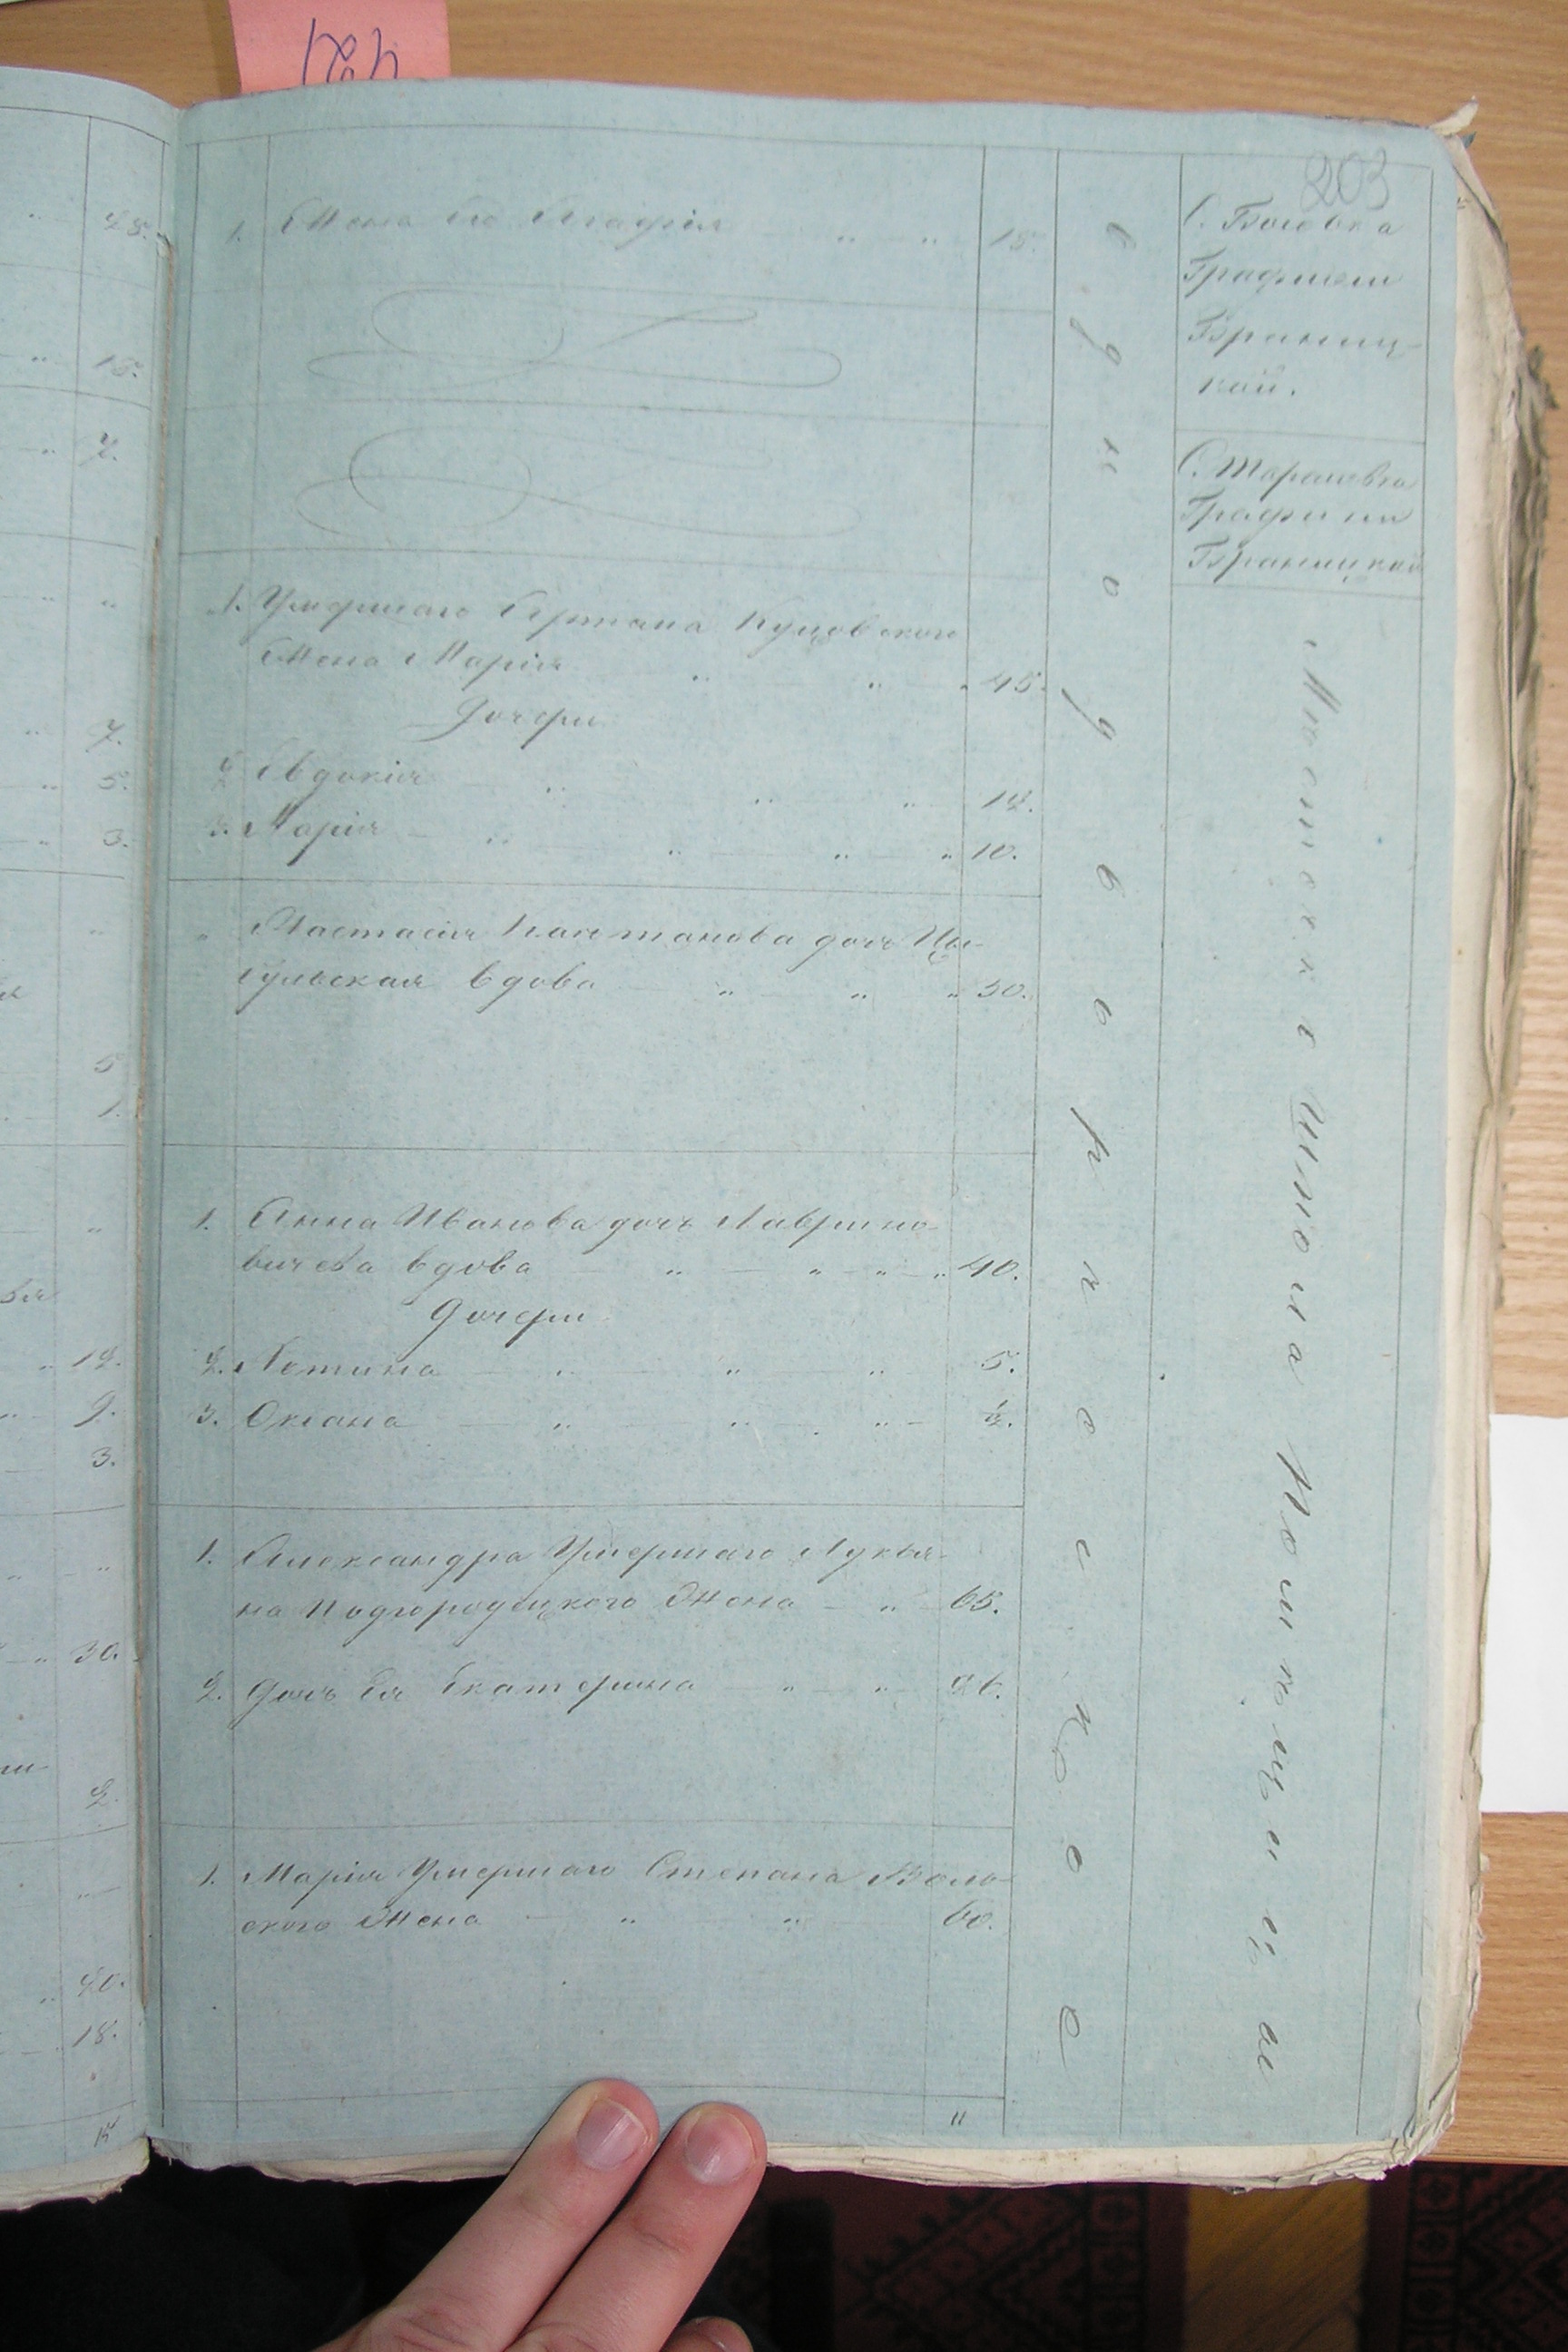 203
1. Жена Его Агафія 18.
1. Умершаго Германа Куцовского
Жена Марія 45.
Дочери
2. Евдокія 12.
3. Марія 10.
Настасія дочь Цы-
гульская вдова 30.
1. Анна Иванова дочь Лаврино-
вичева вдова 40.
Дочери
2. Устина 5.
3. Оксана ½.
1. Александра Умершаго Лукья-
на Подгородецкого Жена 65.
2. Дочь Ея Екатерина 26.
1. Марія Умершаго Степана Воль-
ского Жена 60.
11
Однодворческое
С.
Графини
Браниц-
кой.
С. Тарасовка
Графини
Браницкой
Мѣстечко Шпола
28.
15.
7.
7.
5.
3.
5
1.
12.
9.
3.
30.
2.
20.
18.
15